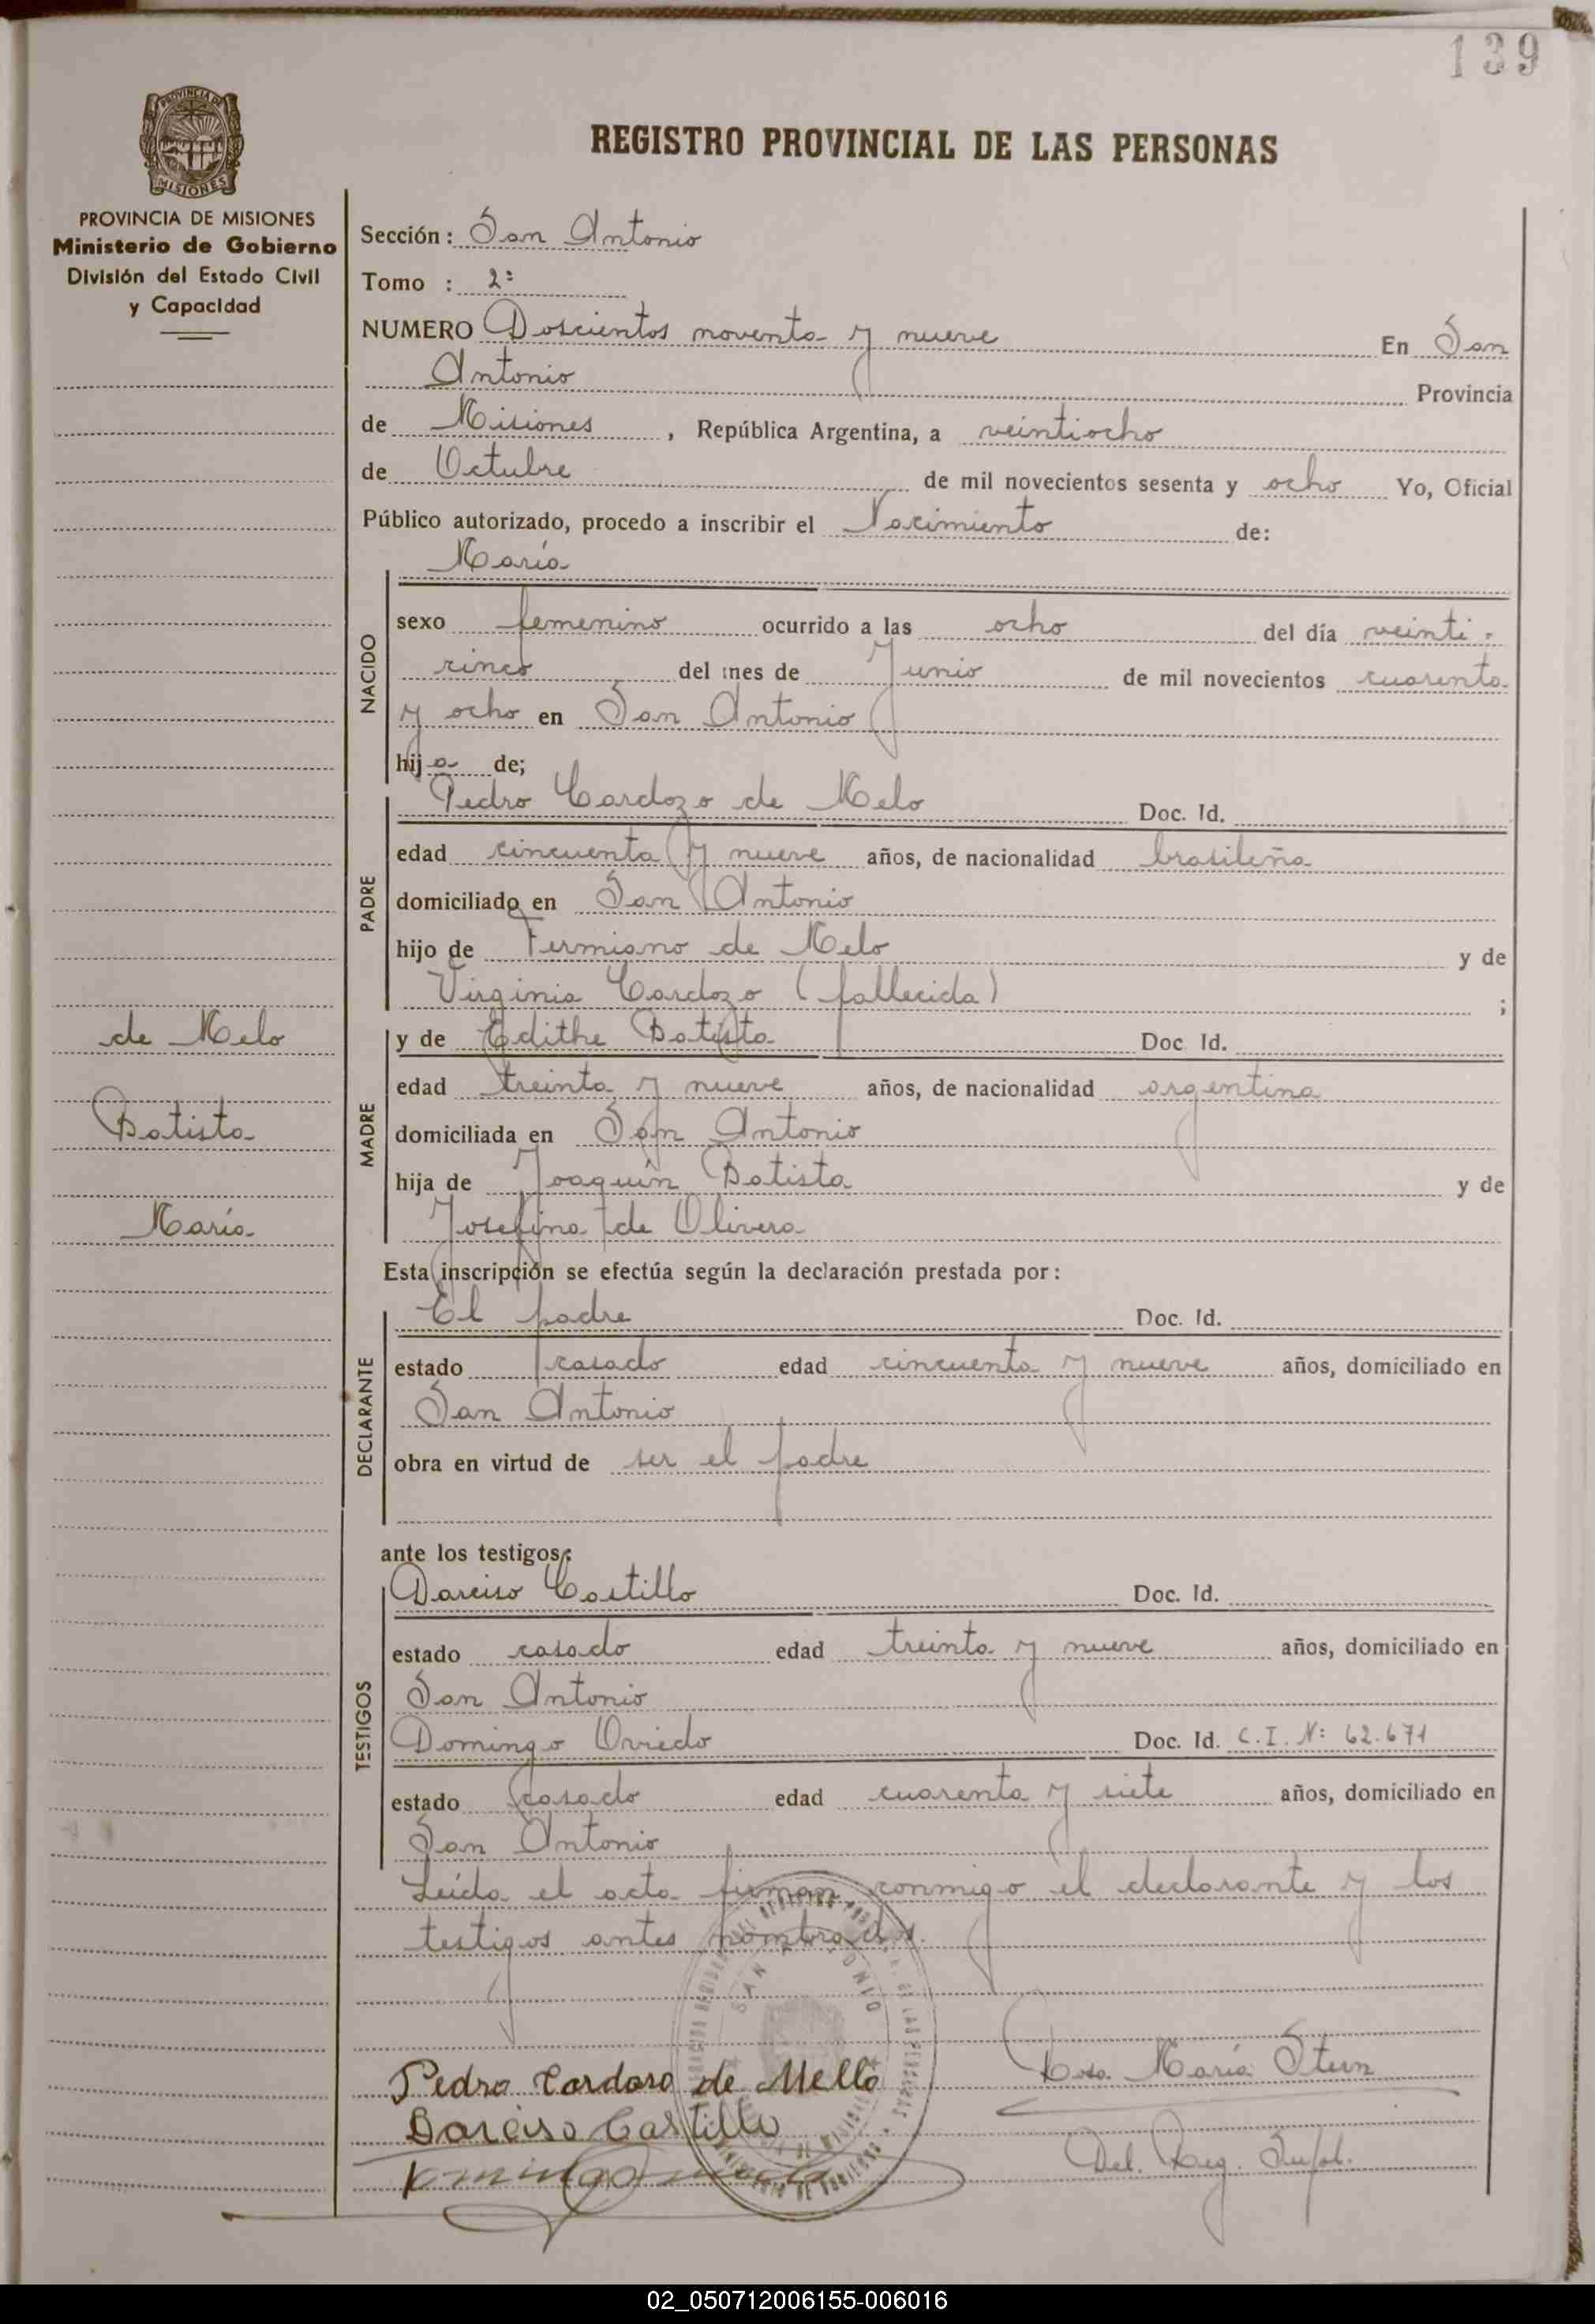 139
PROVINCIA DE
MISIONES
REGISTRO PROVINCIAL DE LAS PERSONAS
PROVINCIA DE MISIONES
Ministerio de Gobierno
División del Estado Civil
y Capacidad
Sección: San Antonio
Tomo : 2º
NUMERO Doscientos noventa y nueve En San
Antonio Provincia
de Misiones, República Argentina, a veintiocho
de Octubre de mil novecientos sesenta y ocho Yo, Oficial
Público autorizado, procedo a inscribir el Nacimiento de:
NACIDO
María
sexo femenino ocurrido a las ocho del día veinti-
cinco del mes de Junio de mil novecientos cuarenta
y ocho en San Antonio
hija de;
PADRE
Pedro Cardozo de Melo Doc. Id.
edad cincuenta y nueve años, de nacionalidad brasileña
domiciliado en San Antonio
hijo de Fermiano de Melo y de
Virginia Cardozo (fallecida) ;
de Melo
Batista
María
MADRE
y de Edithe Batista Doc. Id.
edad treinta y nueve años, de nacionalidad argentina
domiciliada en San Antonio
hija de Joaquín Batista y de
Josefina de Olivera
Esta inscripción se efectúa según la declaración prestada por:
DECLARANTE
El padre Doc. Id.
estado casado edad cincuenta y nueve años, domiciliado en
San Antonio
obra en virtud de ser el padre
ante los testigos:
TESTIGOS
Darciso Castillo Doc. Id.
estado casado edad treinta y nueve años, domiciliado en
San Antonio
Domingo Oviedo Doc. Id. C.I. Nº 62.671
estado casado edad cuarenta y siete años, domiciliado en
San Antonio
Leída el acta firman conmigo el declarante y los
testigos antes nombrados.
SAN ANTONIO
Pedro Cardoso de Mello
Rosa María Stern
Darciso Castillo
Del. Reg. Supl.
02_050712006155-006016